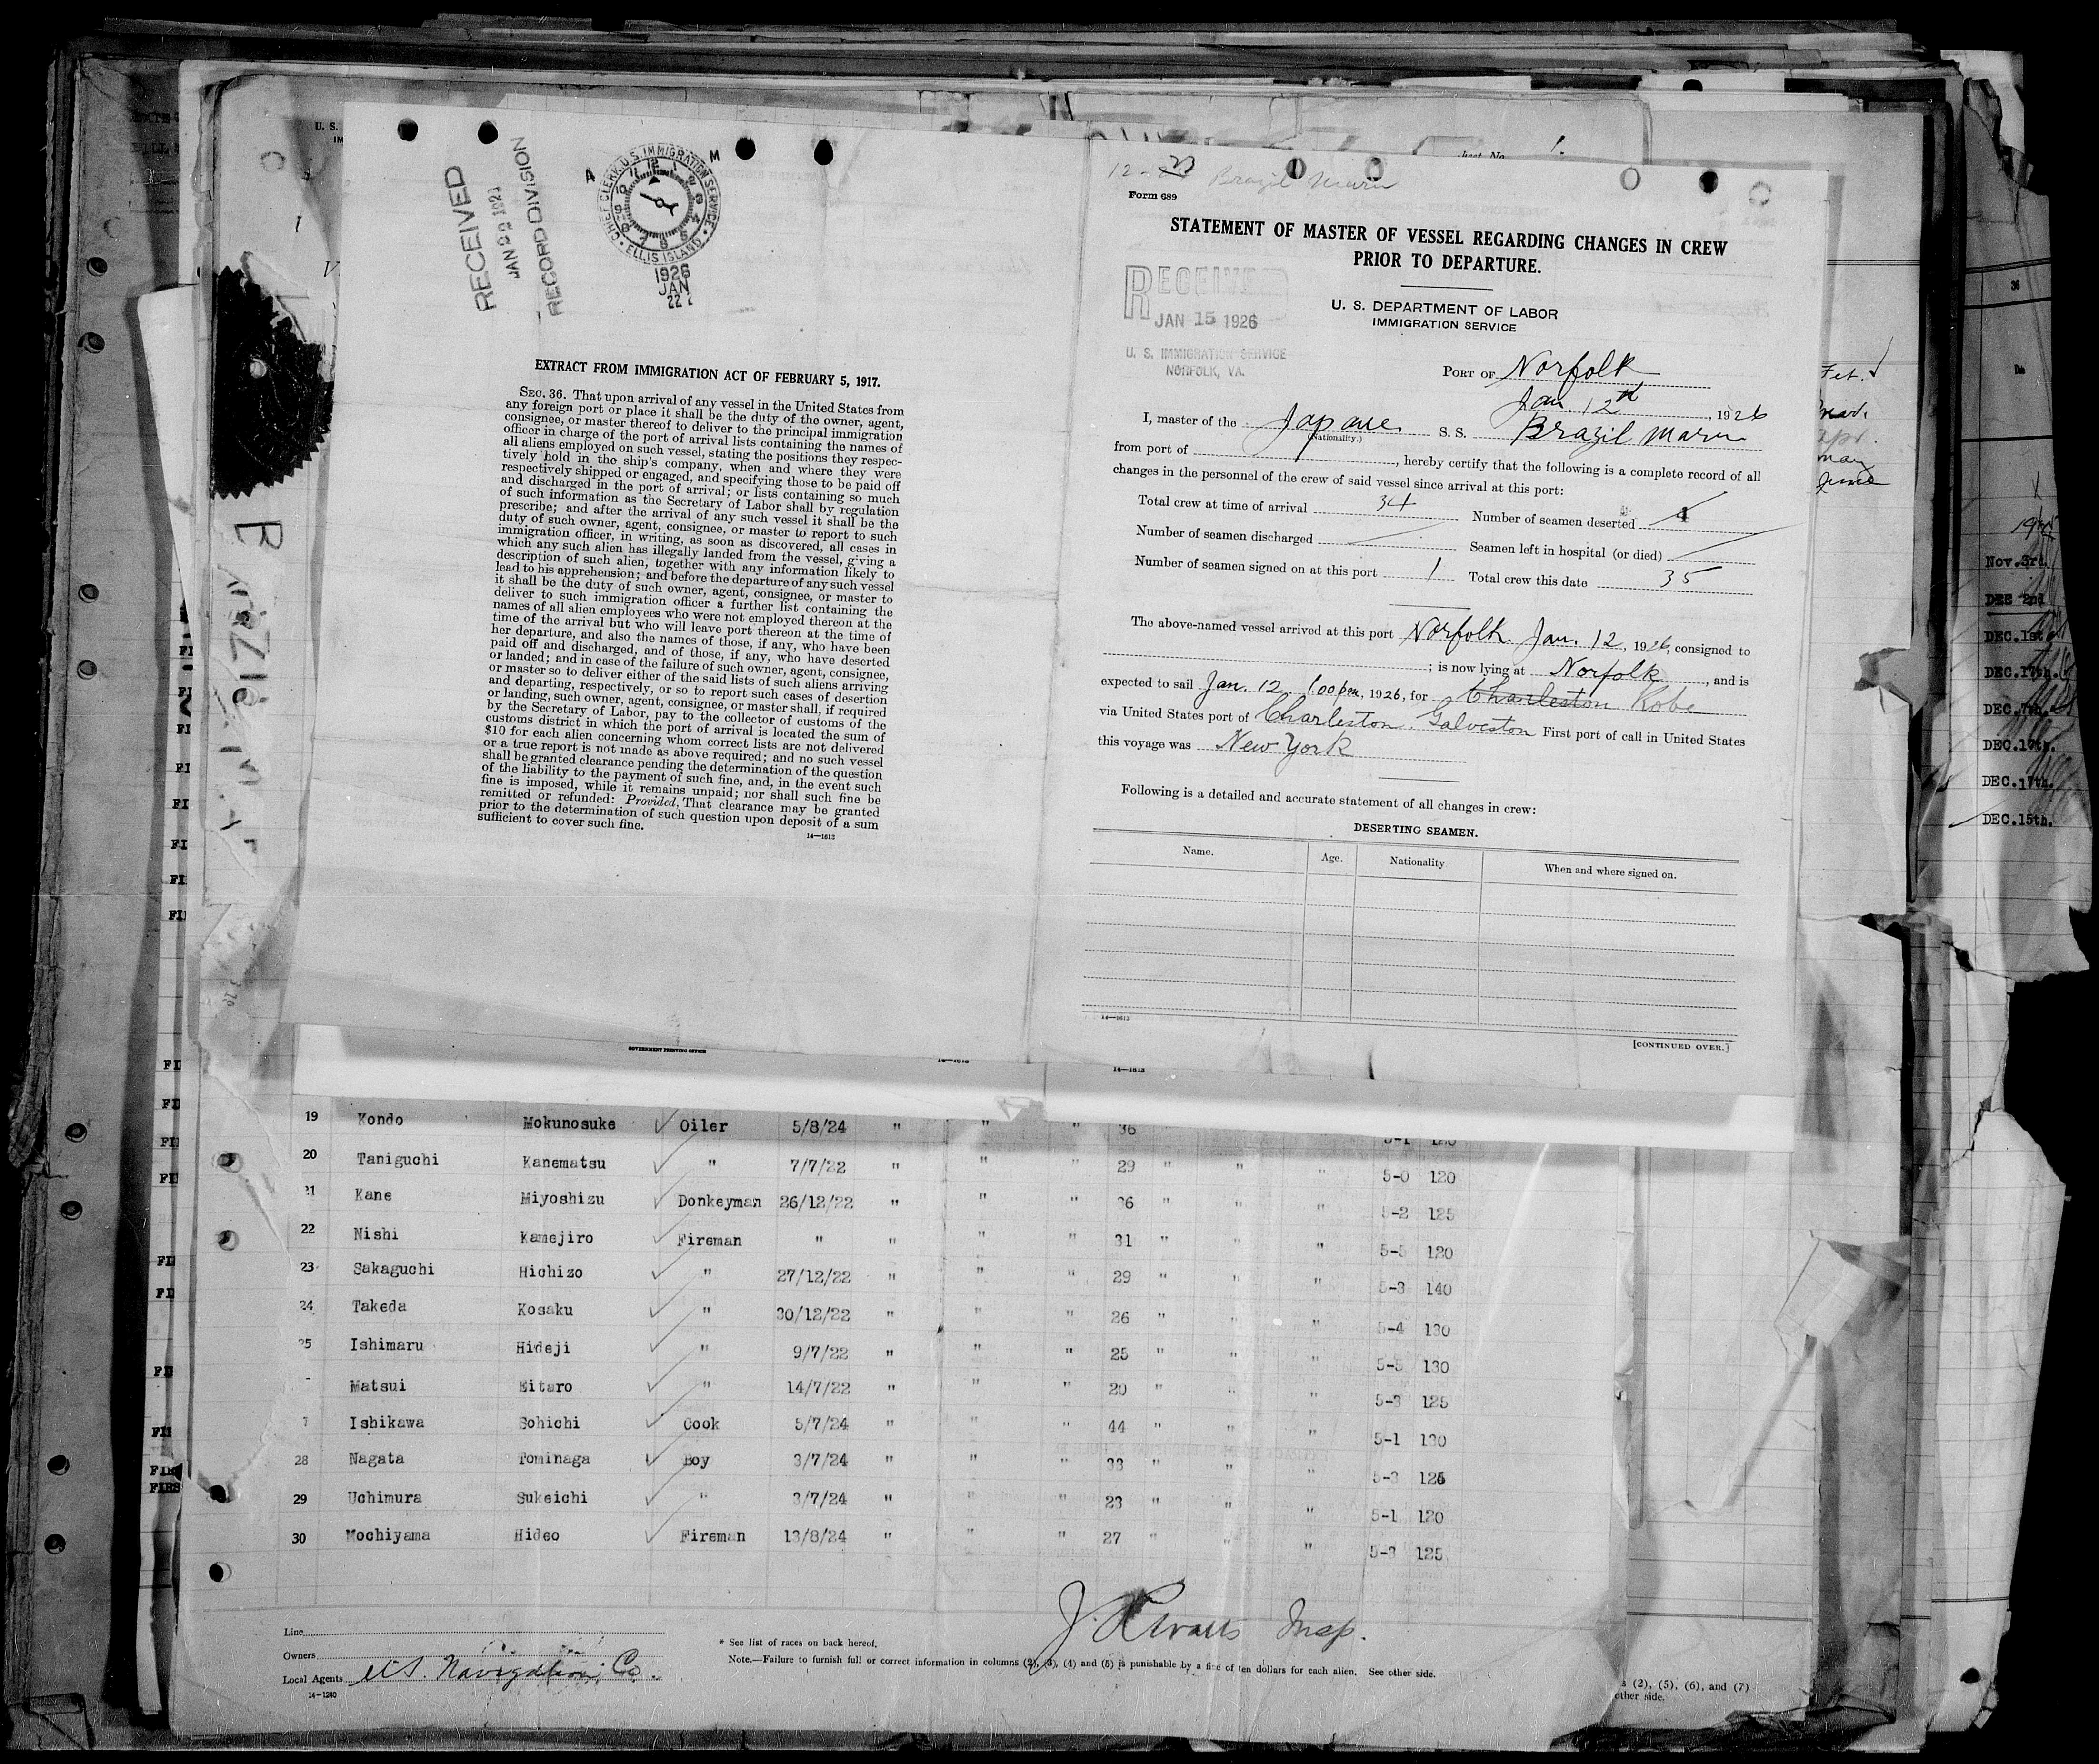 RECEIVED
RECORD DIVISION
A M
CHIEF CLERK, U.S. IMMIGRATION SERVICE
ELLIS ISLAND
1926
JAN
22
EXTRACT FROM IMMIGRATION ACT OF FEBRUARY 5, 1917.
SEC. 36. That upon arrival of any vessel in the United States from
any foreign port or place it shall be the duty of the owner, agent,
consignee, or master thereof to deliver to the principal immigration
officer in charge of the port of arrival lists containing the names of
all aliens employed on such vessel, stating the positions they respec-
tively hold in the ship's company, when and where they were
respectively shipped or engaged, and specifying those to be paid off
and discharged in the port of arrival; or lists containing so much
of such information as the Secretary of Labor shall by regulation
prescribe; and after the arrival of any such vessel it shall be the
duty of such owner, agent, consignee, or master to report to such
immigration officer, in writing, as soon as discovered, all cases in
which any such alien has illegally landed from the vessel, giving a
description of such alien, together with any information likely to
lead to his apprehension; and before the departure of any such vessel
it shall be the duty of such owner, agent, consignee, or master to
deliver to such immigration officer a further list containing the
names of all alien employees who were not employed thereon at the
time of the arrival but who will leave port thereon at the time of
her departure, and also the names of those, if any, who have been
paid off and discharged, and of those, if any, who have deserted
or landed; and in case of the failure of such owner, agent, consignee,
or master so to deliver either of the said lists of such aliens arriving
and departing, respectively, or so to report such cases of desertion
or landing, such owner, agent, consignee, or master shall, if required
by the Secretary of Labor, pay to the collector of customs of the
customs district in which the port of arrival is located the sum of
$10 for each alien concerning whom correct lists are not delivered
or a true report is not made as above required; and no such vessel
shall be granted clearance pending the determination of the question
of the liability to the payment of such fine, and, in the event such
fine is imposed, while it remains unpaid; nor shall such fine be
remitted or refunded: Provided, That clearance may be granted
prior to the determination of such question upon deposit of a sum
sufficient to cover such fine.
14—1613
GOVERNMENT PRINTING OFFICE
Brazil Maru
Form 689
STATEMENT OF MASTER OF VESSEL REGARDING CHANGES IN CREW
PRIOR TO DEPARTURE.
RECEIVED
JAN 15 1926
U. S. IMMIGRATION SERVICE
NORFOLK, VA.
U. S. DEPARTMENT OF LABOR
IMMIGRATION SERVICE
PORT OF Norfolk
Jan. 12th, 1926
I, master of the Japane S. S. Brazil Maru
(Nationality.)
from port of , hereby certify that the following is a complete record of all
changes in the personnel of the crew of said vessel since arrival at this port:
Total crew at time of arrival 34 Number of seamen deserted
Number of seamen discharged Seamen left in hospital (or died)
Number of seamen signed on at this port 1 Total crew this date 35
The above-named vessel arrived at this port Norfolk Jan. 12, 1926, consigned to
; is now lying at Norfolk, and is
expected to sail Jan. 12 1.00 pm, 1926, for Charleston Kobe
via United States port of Charleston. Galveston First port of call in United States
this voyage was New York
Following is a detailed and accurate statement of all changes in crew:
DESERTING SEAMEN.
Name. Age. Nationality When and where signed on.
14—1613
[CONTINUED OVER.]
14—1613
19 Kondo Mokunosuke Oiler 5/8/24 " " " 36 5-1 120
20 Taniguchi Kanematsu " 7/7/22 " " " 29 " " " 5-0 120
21 Kane Miyoshizu Donkeyman 26/12/22 " " " 36 " " " 5-2 125
22 Nishi Kamejiro Fireman " " " " 31 " " " 5-5 120
23 Sakaguchi Hichizo " 27/12/22 " " " 29 " " " 5-3 140
24 Takeda Kosaku " 30/12/22 " " " 26 " " " 5-4 130
25 Ishimaru Hideji " 9/7/22 " " " 25 " " " 5-5 130
Matsui Eitaro " 14/7/22 " " " 20 " " " 5-3 125
7 Ishikawa Sohichi Cook 5/7/24 " " " 44 " " " 5-1 130
28 Nagata Tominaga Boy 3/7/24 " " " 33 " " " 5-3 125
29 Uchimura Sukeichi " 3/7/24 " " " 23 " " " 5-1 120
30 Mochiyama Hideo Fireman 13/8/24 " " " 27 " " " 5-3 125
Insp.
Line
Owners
Local Agents Navigation Co.
14—1240
* See list of races on back hereof.
Note.—Failure to furnish full or correct information in columns (2), (3), (4) and (5) is punishable by a fine of ten dollars for each alien. See other side.
(2), (5), (6), and (7)
other side.
36
Nov. 3rd.
DEC 2nd
DEC. 1st
DEC. 17th.
DEC. 7th.
DEC. 17th.
DEC. 17th.
DEC. 15th.
May
June